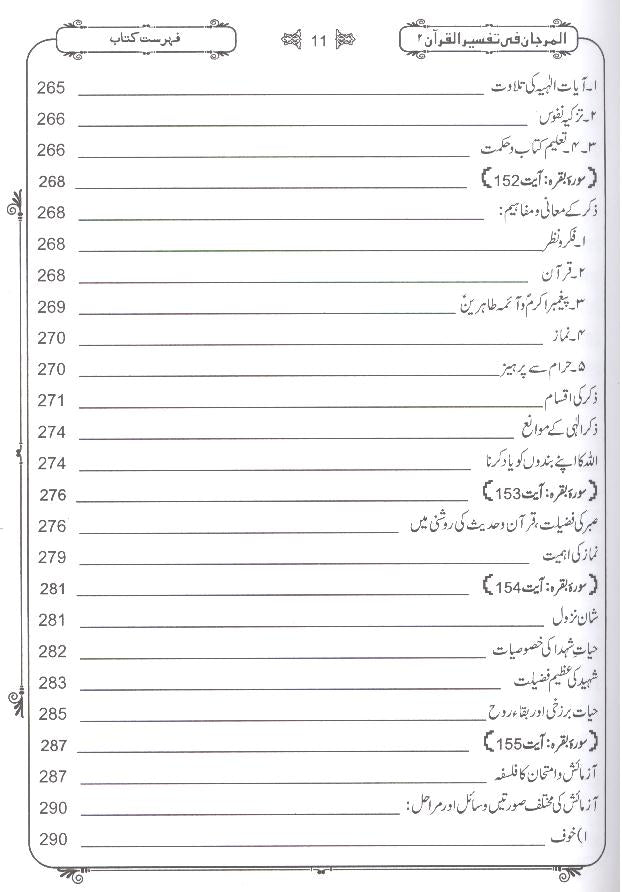 المرجان فی تفسیر القرآن ۲ 11 فہرست کتاب
۱۔ آیات الٰہیہ کی تلاوت 265
۲۔ تزکیہ نفوس 266
۳۔ ۴۔ تعلیم کتاب و حکمت 266
﴿سورۂ بقرہ: آیت 152﴾ 268
ذکر کے معانی و مفاہیم: 268
۱۔ فکر و نظر 268
۲۔ قرآن 268
۳۔ پیغمبر اکرمؐ و آئمہ طاہرینؑ 269
۴۔ نماز 270
۵۔ حرام سے پرہیز 270
ذکر کی اقسام 271
ذکر الٰہی کے موانع 274
اللہ کا اپنے بندوں کو یاد کرنا 274
﴿سورۂ بقرہ: آیت 153﴾ 276
صبر کی فضیلت، قرآن و حدیث کی روشنی میں 276
نماز کی اہمیت 279
﴿سورۂ بقرہ: آیت 154﴾ 281
شان نزول 281
حیاتِ شہدا کی خصوصیات 282
شہید کی عظیم فضیلت 283
حیات برزخی اور بقاء روح 285
﴿سورۂ بقرہ: آیت 155﴾ 287
آزمائش و امتحان کا فلسفہ 287
آزمائش کی مختلف صورتیں وسائل اور مراحل: 290
۱) خوف 290